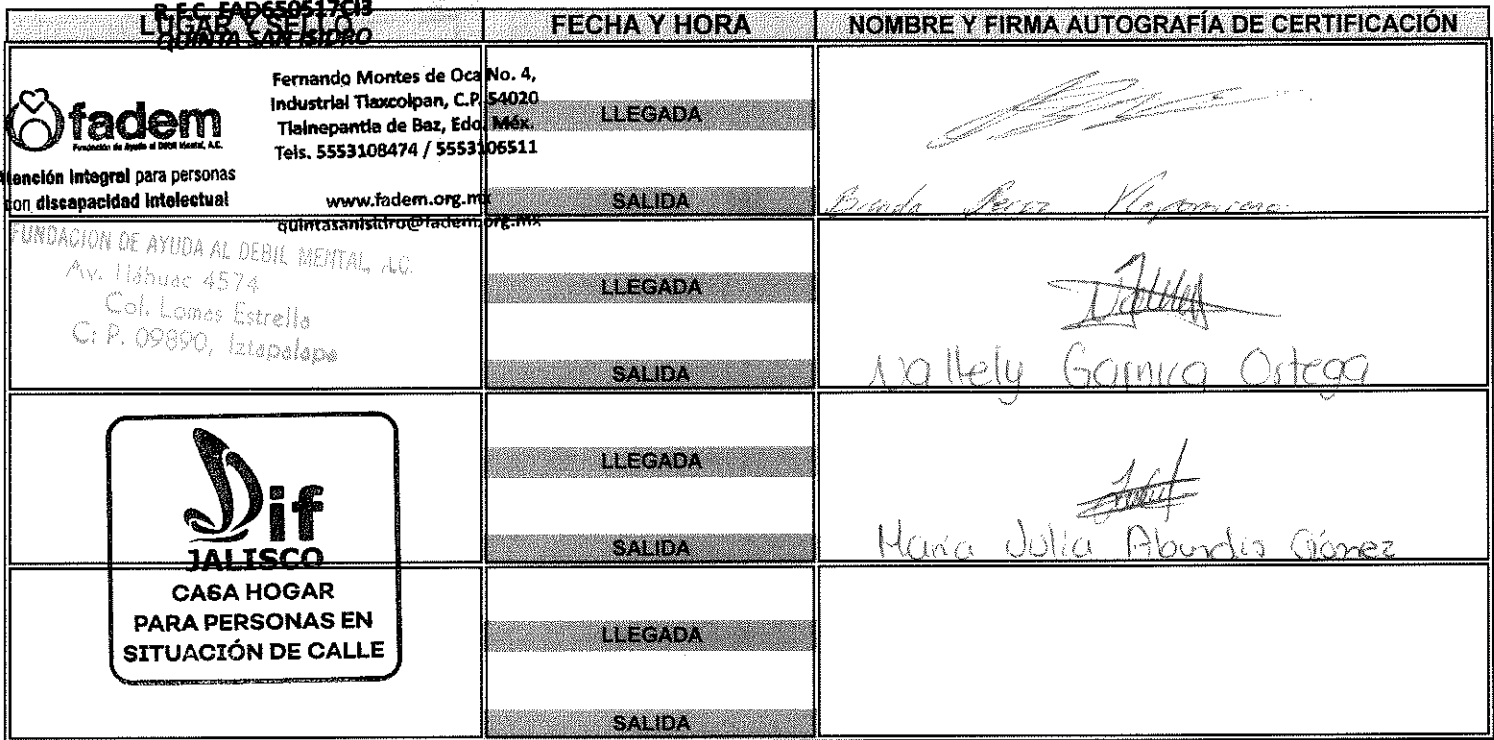 R.F.C. FAD650517CI3
LUGAR Y SELLO
QUINTA SAN ISIDRO
FECHA Y HORA
NOMBRE Y FIRMA AUTOGRAFÍA DE CERTIFICACIÓN
fadem
Fundación de Ayuda al Débil Mental, A.C.
Atención integral para personas
con discapacidad intelectual
Fernando Montes de Oca No. 4,
Industrial Tlaxcolpan, C.P. 54020
Tlalnepantla de Baz, Edo. Méx.
Tels. 5553108474 / 5553106511
www.fadem.org.mx
quintasanisidro@fadem.org.mx
LLEGADA
SALIDA
FUNDACION DE AYUDA AL DEBIL MENTAL, A.C.
Av. Tláhuac 4574
Col. Lomas Estrella
C. P. 09890, Iztapalapa
LLEGADA
SALIDA
Nallely Garnica Ortega
Dif
JALISCO
CASA HOGAR
PARA PERSONAS EN
SITUACIÓN DE CALLE
LLEGADA
SALIDA
María Julia Abundis Gómez
LLEGADA
SALIDA